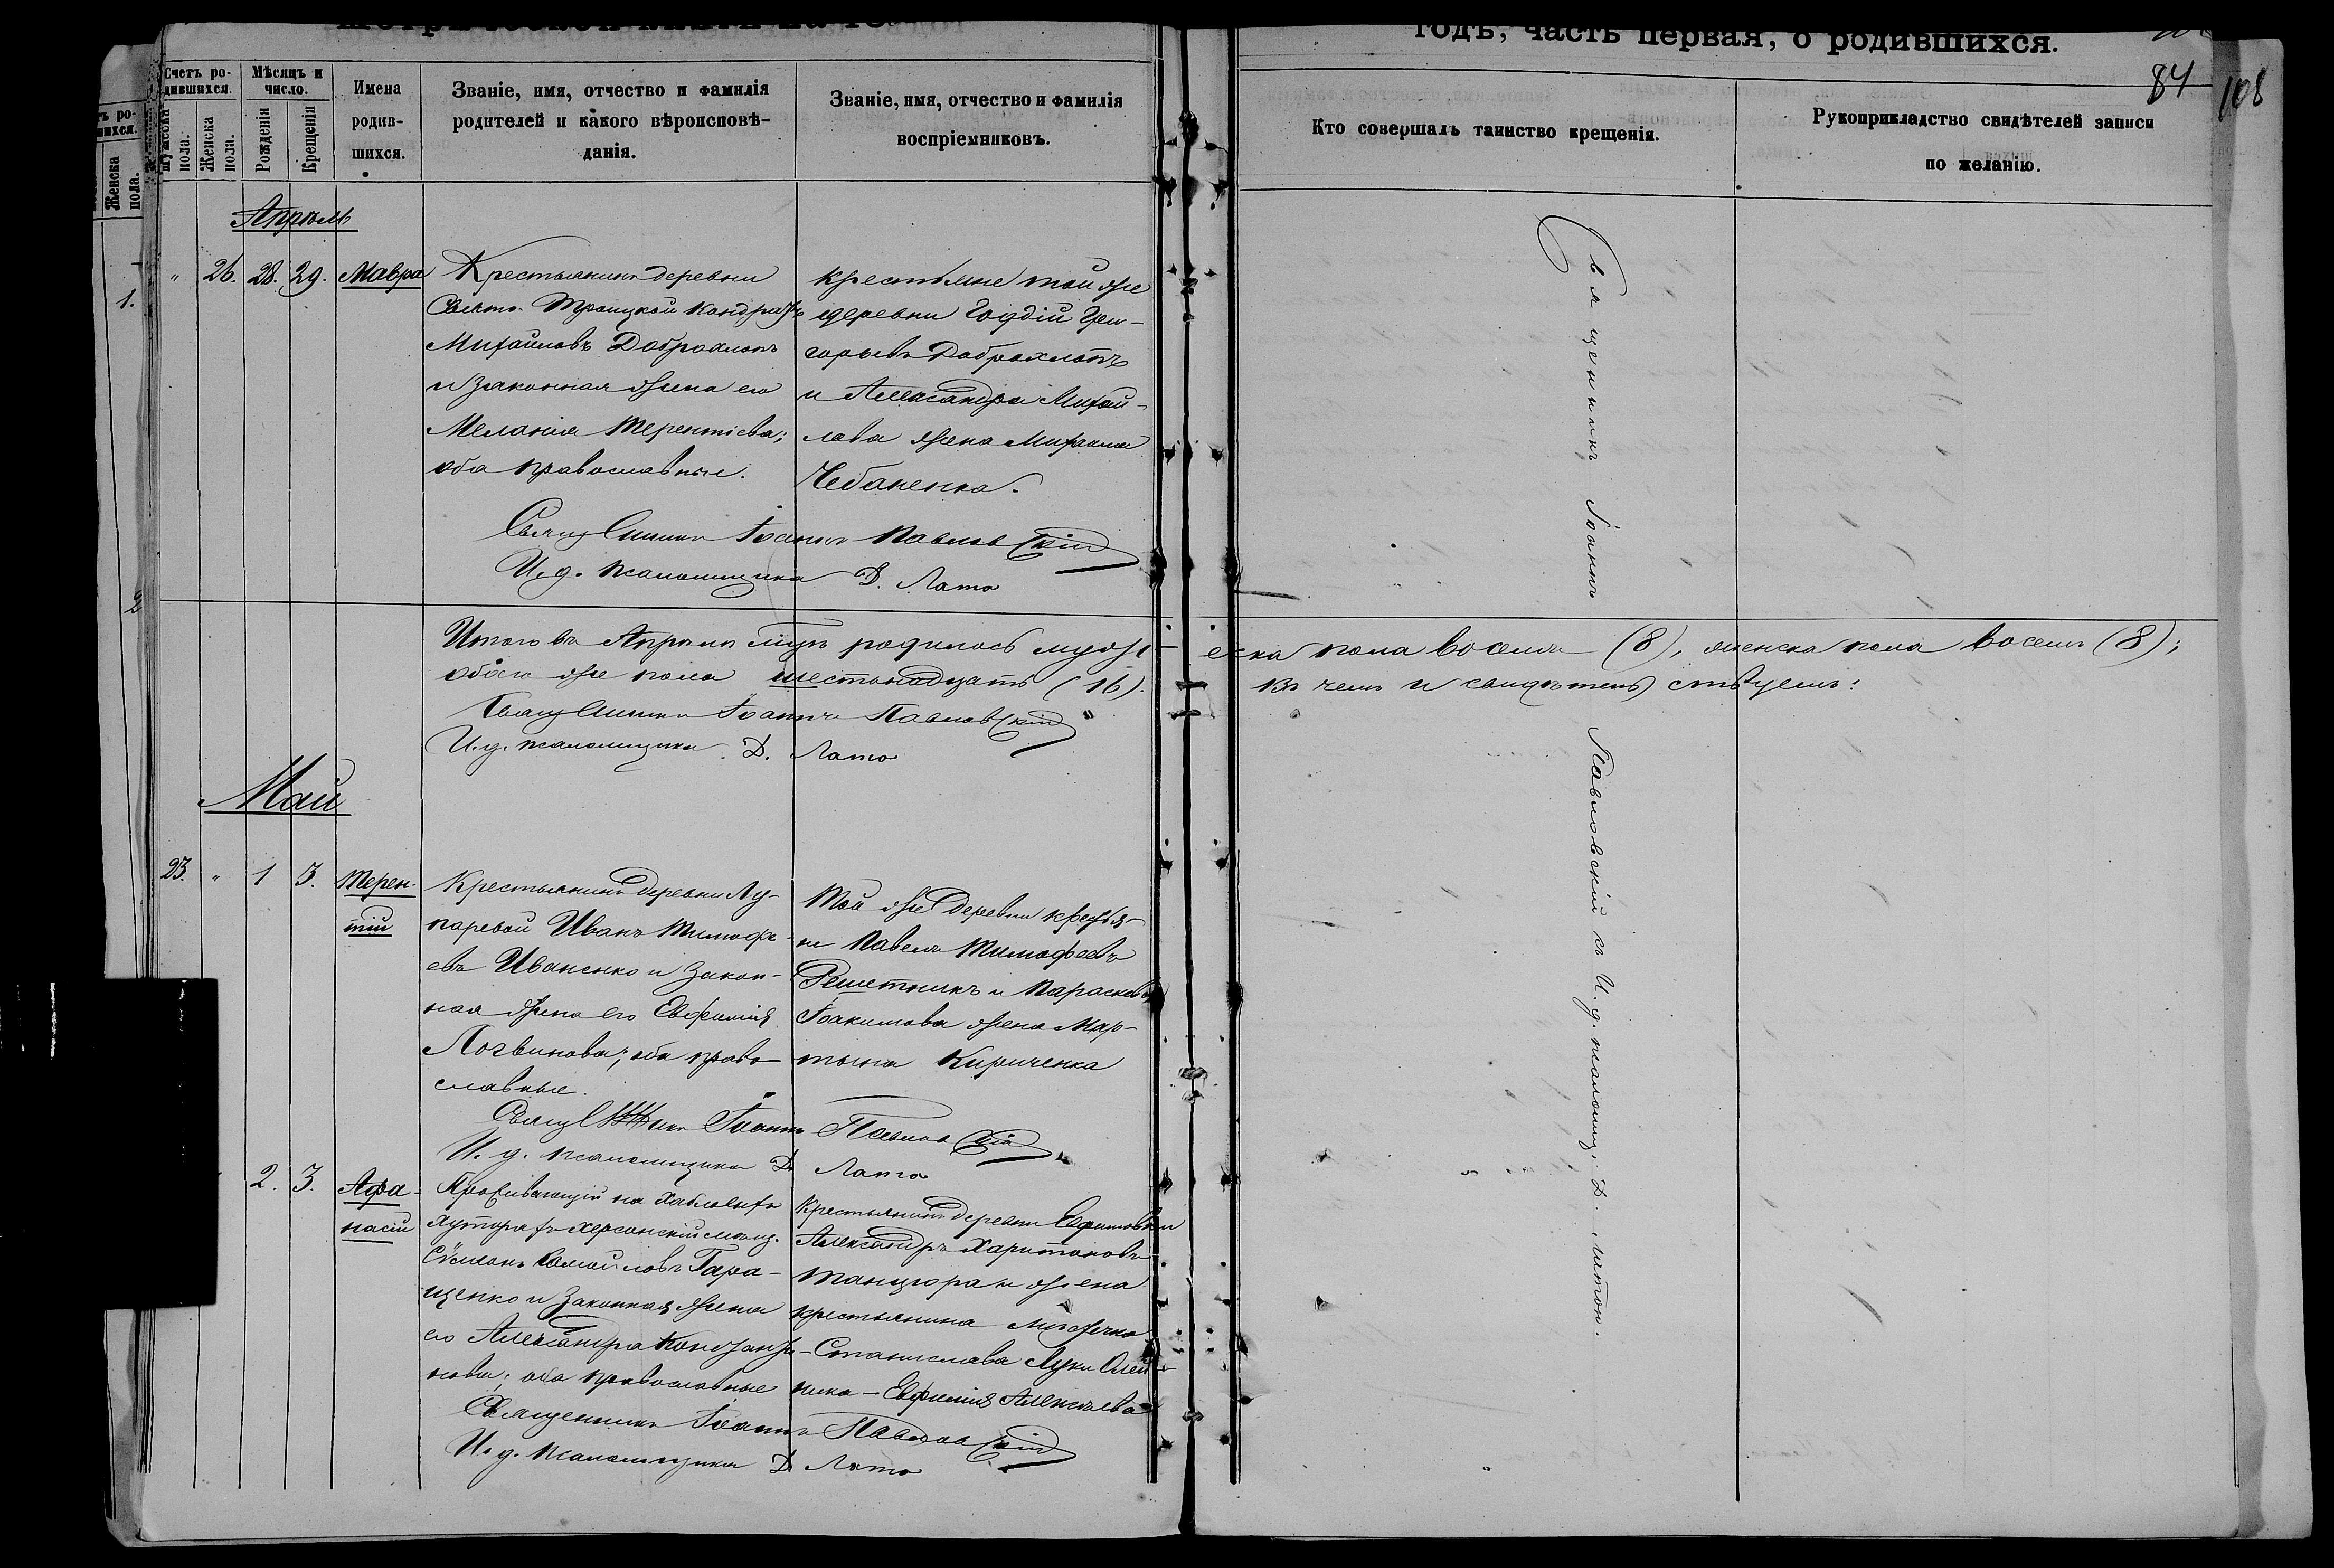 годъ, часть первая, о родившихся.
84
108
Счетъ ро-
дившихся.
Мѣсяцъ и
число.
Мужеска
пола.
Женска
пола.
Рожденія
Крещенія
Имена
родив-
шихся.
Званіе, имя, отчество и фамилія
родителей и какого вѣроисповѣ-
данія.
Званіе, имя, отчество и фамилія
воспріемниковъ.
Кто совершалъ таинство крещенія.
Рукоприкладство свидѣтелей записи
по желанію.
Женска
пола.
1.
2
Апрѣль
" 26. 28. 29. Мавра
Крестьянинъ деревни
Свято-Троицкой Кондратъ
Михайловъ Доброхлопъ
и законная жена его
Меланія Терентіева;
оба православные.
крестьяне той же
деревни Гордій Гри-
горьевъ Доброхлопъ
и Александра Михай-
лова жена Михаила
Чебаненка.
Священникъ Іоаннъ Павловскій
И. д. псаломщика Д. Лато
Итого въ Апрѣлѣ м-цѣ родилось муж-
еска пола восемь (8), женска пола восемь (8);
обоего же пола шестьнадцать (16).
въ чемъ и свидѣтельствуемъ:
Священникъ Іоаннъ Павловскій
И. д. псаломщика Д. Лато
Май
23. " 1 3. Терен-
тій
Крестьянинъ деревни Лу-
паревой Иванъ Тимофе-
евъ Иваненко и закон-
ная жена его Евфимія
Логвинова; оба право-
славные.
Той же деревни крестья-
не Павелъ Тимофеевъ
Решетникъ и Параскева
Іоакимова жена Мар-
тына Кириченка
Священникъ Іоаннъ Павловскій
И. д. псаломщика Д. Лато
2. 3. Афа-
насій
Проживающій на
хуторахъ Херсонскій мѣщ.
Самойловъ Гара-
щенко и законная жена
его Александра Константи-
нова; оба православные
Крестьянинъ деревни Ефимовки
Александръ Харитоновъ
Танцюра и жена
крестьянина мѣстечка
Станислава Луки Олей-
ника - Евфимія Алексѣева
Священникъ Іоаннъ Павловскій
И. д. псаломщика Д. Лато
Священникъ Іоаннъ
Павловскій съ И. д. псаломщ. Д.